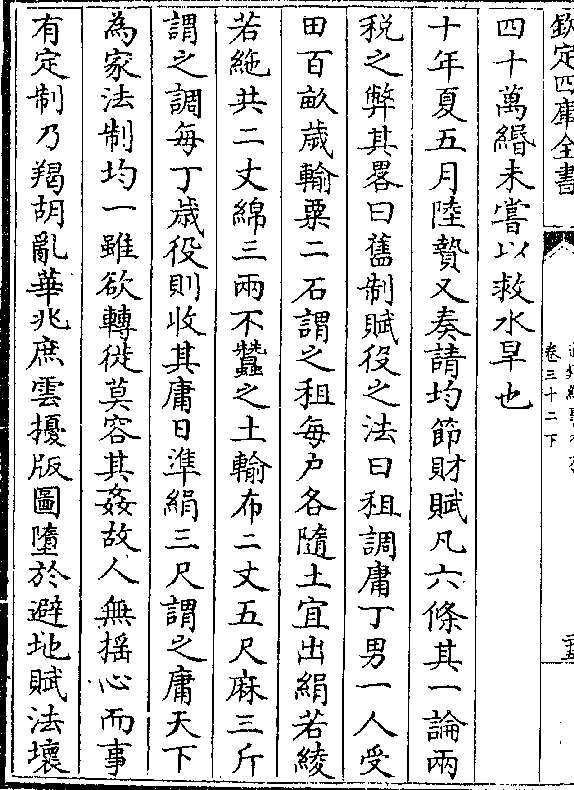 欽定四庫全書
卷三十二下
四十萬緡未嘗以救水旱也
十年夏五月陸贄又奏請均節財賦凡六條其一論兩
稅之弊其畧曰舊制賦役之法曰租調庸丁男一人受
田百畝歲輸粟二石謂之租每戶各隨土宜出絹若綾
若絁共二丈綿三兩不蠶之土輸布二丈五尺麻三斤
謂之調每丁歲役則收其庸日準絹三尺謂之庸天下
為家法制均一雖欲轉徙莫容其姦故人無搖心而事
有定制乃羯胡亂華兆庶雲擾版圖墮於避地賦法壞